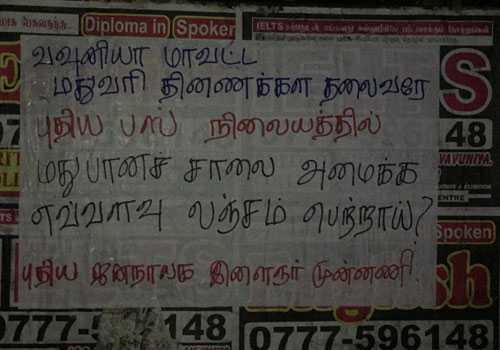 Diploma in Spoken
வவுனியா மாவட்ட
மதுவரி திணைக்கள தலைவரே
புதிய பஸ் நிலையத்தில்
மதுபானச் சாலை அமைக்க
எவ்வளவு லஞ்சம் பெற்றாய்?
புதிய ஜனநாயக இளைஞர் முன்னணி
IELTS
S
0777
48
VAVUNIYA
CENTRE
Spoken
English
0777-5
148
0777-596148